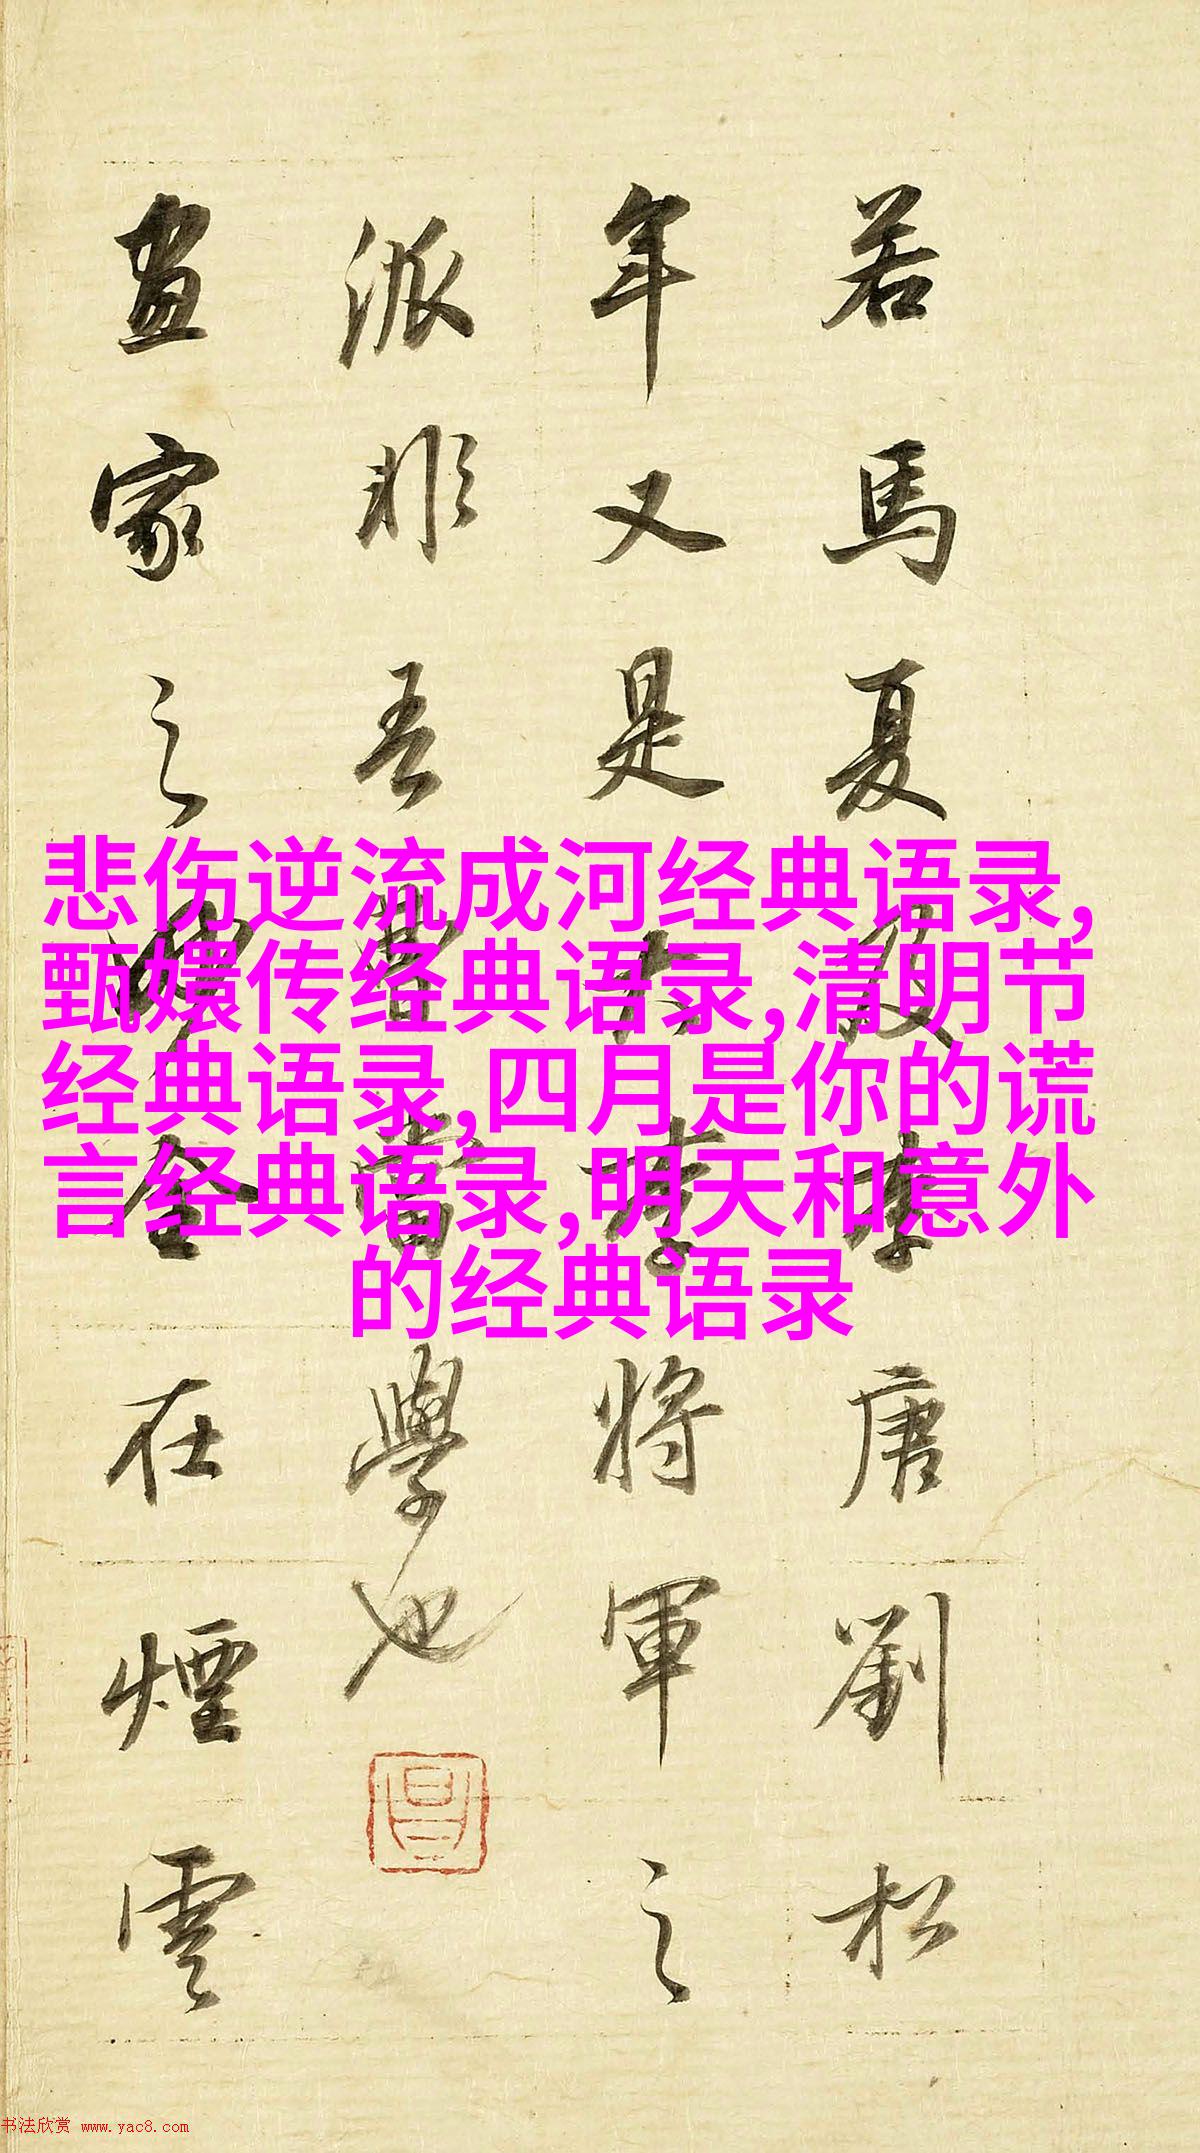 若馬夏及李唐劉松
年又是大李將軍之
派非吾曹當學也
昌
畫家之妙全在煙雲
悲伤逆流成河经典语录,
甄嬛传经典语录,清明节
经典语录,四月是你的谎
言经典语录,明天和意外
的经典语录
书法欣赏 www.yac8.com